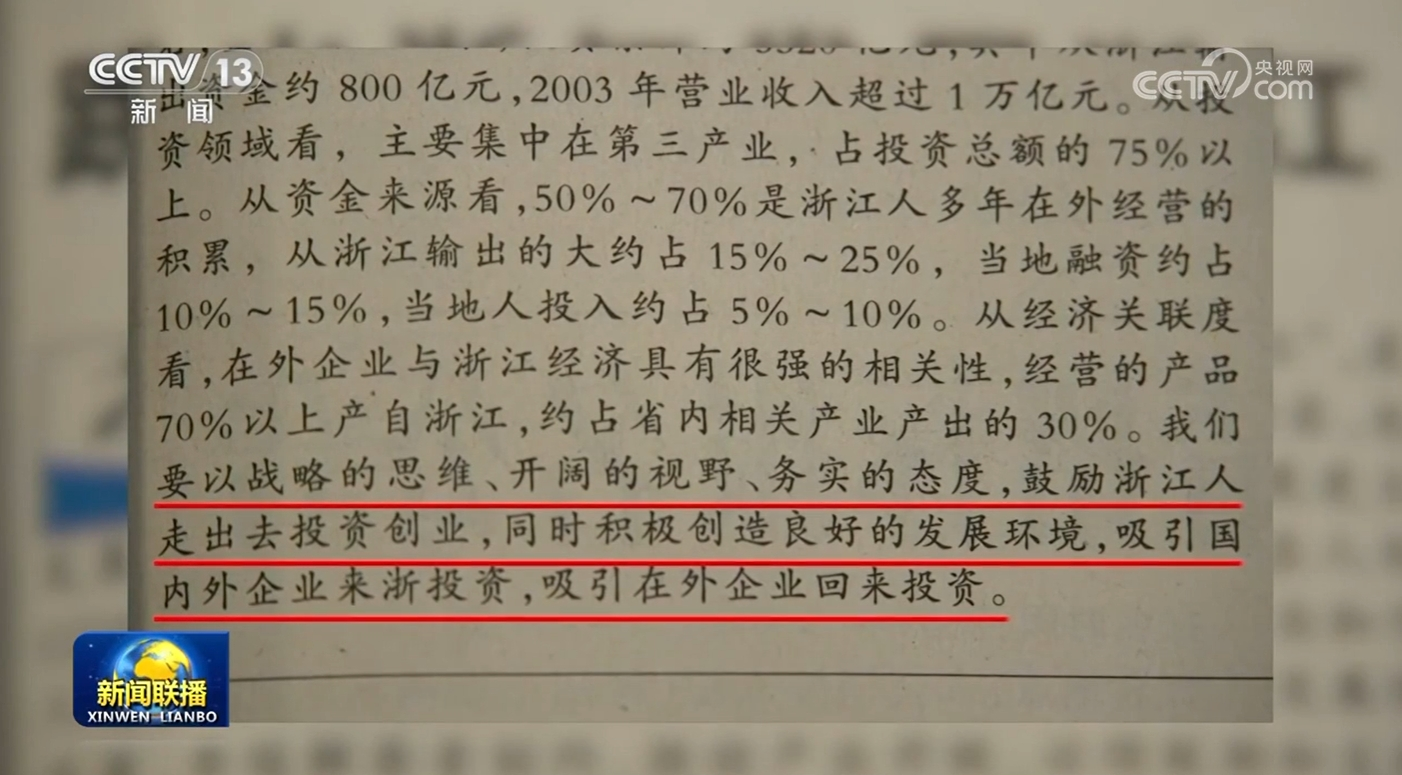 CCTV 13
新闻
央视网
CCTV.com
亿元,
出资金约 800 亿元,2003 年营业收入超过 1 万亿元。从投
资领域看,主要集中在第三产业,占投资总额的 75%以
上。从资金来源看,50%~70%是浙江人多年在外经营的
积累,从浙江输出的大约占 15%~25%,当地融资约占
10%~15%,当地人投入约占 5%~10%。从经济关联度
看,在外企业与浙江经济具有很强的相关性,经营的产品
70%以上产自浙江,约占省内相关产业产出的 30%。我们
要以战略的思维、开阔的视野、务实的态度,鼓励浙江人
走出去投资创业,同时积极创造良好的发展环境,吸引国
内外企业来浙投资,吸引在外企业回来投资。
新闻联播
XINWEN LIANBO